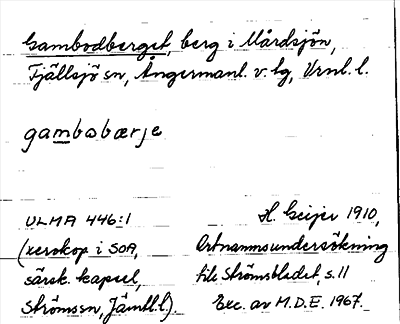 Gambodberget, berg i Mårdsjön,
Fjällsjö sn, Ångermanl. v. tg, Vrnl. l.
gambobærje
ULMA 446:1
(xerokop i SOA,
särsk. kapsel,
Ströms sn, Jämtl. l).
H. Geijer 1910,
Ortnamnsundersökning
till Strömsbladet, s. 11
Exc. av M.D.E. 1967.